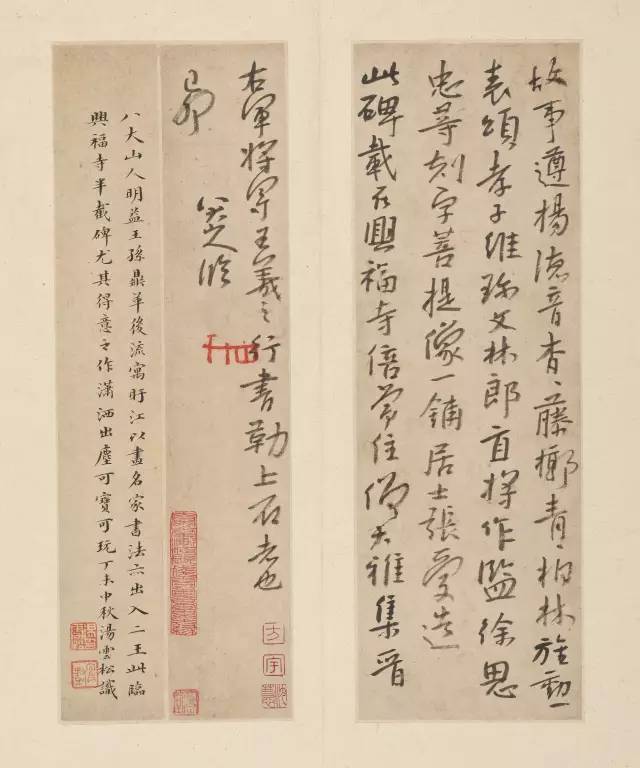 故事遵楊德音杳〻藤鄉青〻柏林旌勳
表頌孝子維珍文林郎直將作監徐思
忠等刻字菩提像一鋪居士張愛造
此碑載在興福寺倍常住僧大雅集晉
右軍將軍王羲之行書勒上石者也
己卯
八大人臨
八大山人明益王孫鼎革後流寓盱江以畫名家書法亦出入二王此臨
興福寺半截碑尤其得意之作瀟洒出塵可寶可玩丁未中秋湯雲松識
方
宇